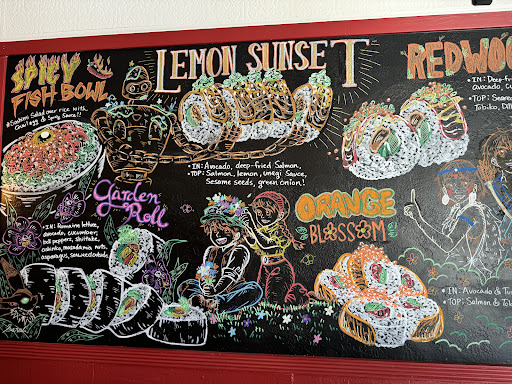 SPICY
FISH BOWL
Sashimi Salad over rice with
& Spicy Sauce!!
LEMON SUNSET
• IN: Avocado, deep-fried Salmon,
TOP: Salmon, lemon, unagi Sauce,
Sesame seeds, green onion!
REDWOO
• IN: Deep-f
avocado, cu
• TOP: Seare
Tobiko,
Garden
Roll
• IN: Romaine lettuce,
avocado, cucumber,
bell peppers, shiitake,
oshinko, macadamia nuts,
asparagus,
ORANGE
BLOSSOM
• IN: Avocado & Tu
• TOP: Salmon & Tob